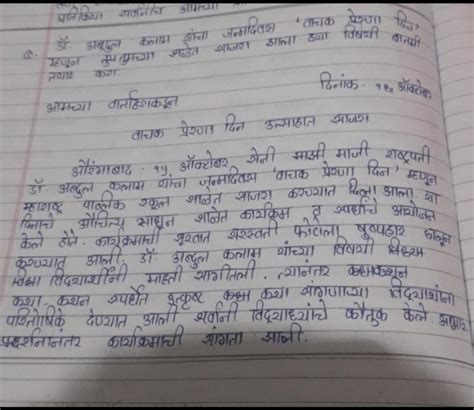 प्रतिक्रिया
डॉ. अब्दुल कलाम यांचा जन्मदिवस 'वाचक प्रेरणा दिन'
म्हणून तुमच्या शाळेत साजरा झाला ह्या विषयी बातमी
तयार करा.
दिनांक - १५ ऑक्टोबर
आमच्या वार्ताहराकडून
वाचक प्रेरणा दिन उत्साहात साजरा
औरंगाबाद : १५ ऑक्टोबर रोजी माजी राष्ट्रपती
डॉ अब्दुल कलाम यांचा जन्मदिवस 'वाचक प्रेरणा दिन' म्हणून
महाराष्ट्र पब्लिक स्कूल शाळेत साजरा करण्यात आला. या
दिनाचे औचित्य साधून शाळेत कार्यक्रम व स्पर्धांचे आयोजन
केले होते. कार्यक्रमाची सुरवात सरस्वती फोटोला पुष्पहार घालून
करण्यात आली. डॉ. अब्दुल कलाम यांच्या विषयी
विद्यार्थीनी माहती सांगितली. त्यानंतर
कथा-कथन स्पर्धेत उत्कृष्ट कथा सांगणाऱ्या विद्यार्थ्यांना
पारितोषिके देण्यात आली सर्वांनी विद्यार्थ्यांचे कौतुक केले. आभार
प्रदर्शनानंतर कार्यक्रमाची सांगता झाली.